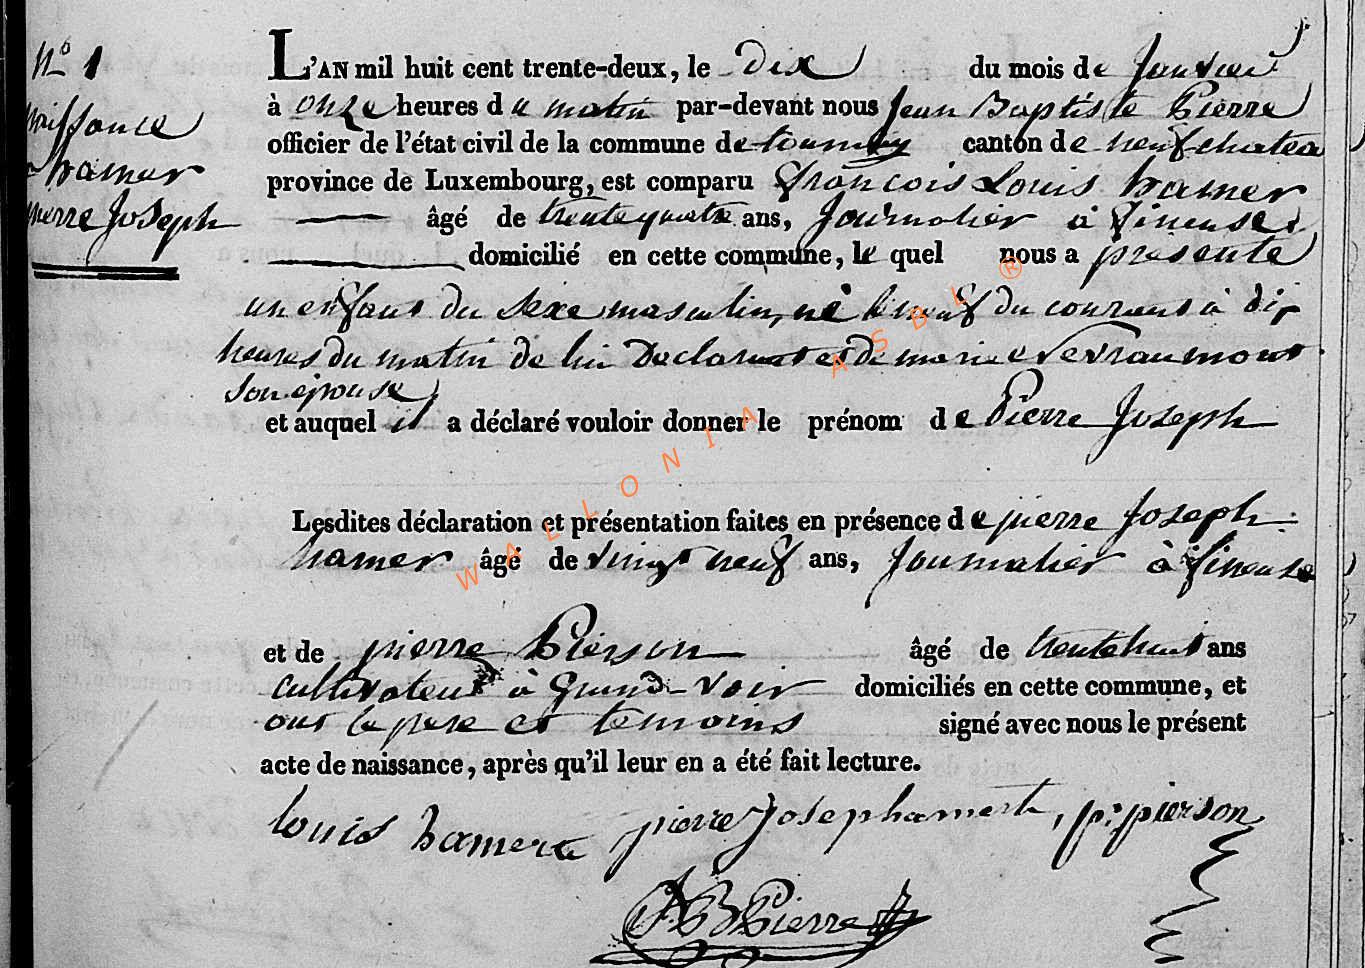 N.º 1
Naissance
hamer
pierre Joseph
L'AN mil huit cent trente-deux, le Dix du mois de Janvier
à onze heures du matin par-devant nous Jean Baptiste Pierre
officier de l'état civil de la commune de tournay canton de neufchateau
province de Luxembourg, est comparu François Louis hamer
âgé de trente quatre ans, Journalier à
domicilié en cette commune, le quel nous a présenté
un enfant du sexe masculin, né le neuf du courant à dix
heures du matin de lui Déclarant et de marie
son épouse
et auquel il a déclaré vouloir donner le prénom de Pierre Joseph
Lesdites déclaration et présentation faites en présence de pierre Joseph
hamer âgé de vingt neuf ans, Journalier à
et de pierre Pierson âgé de trente huit ans
cultivateur à Grand-voir domiciliés en cette commune, et
ont le pere et temoins signé avec nous le présent
acte de naissance, après qu'il leur en a été fait lecture.
louis hamert pierre Joseph hamert, p: pierson
JB Pierre
WALLONIA ASBL ®